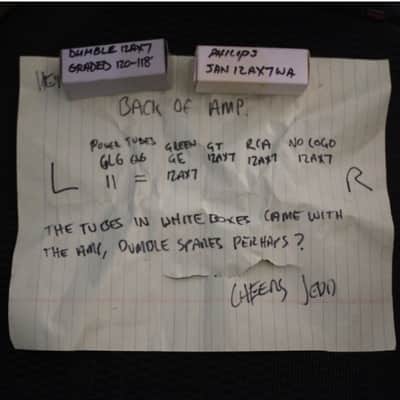 DUMBLE 12AX7
GRADED 120-118
PHILIPS
JAN 12AX7WA
BACK OF AMP.
POWER TUBES GREEN GT RCA NO LOGO
GE 12AX7 12AX7 12AX7
12AX7
L R
THE TUBES IN WHITE BOXES CAME WITH
THE AMP, DUMBLE SPARES PERHAPS?
CHEERS